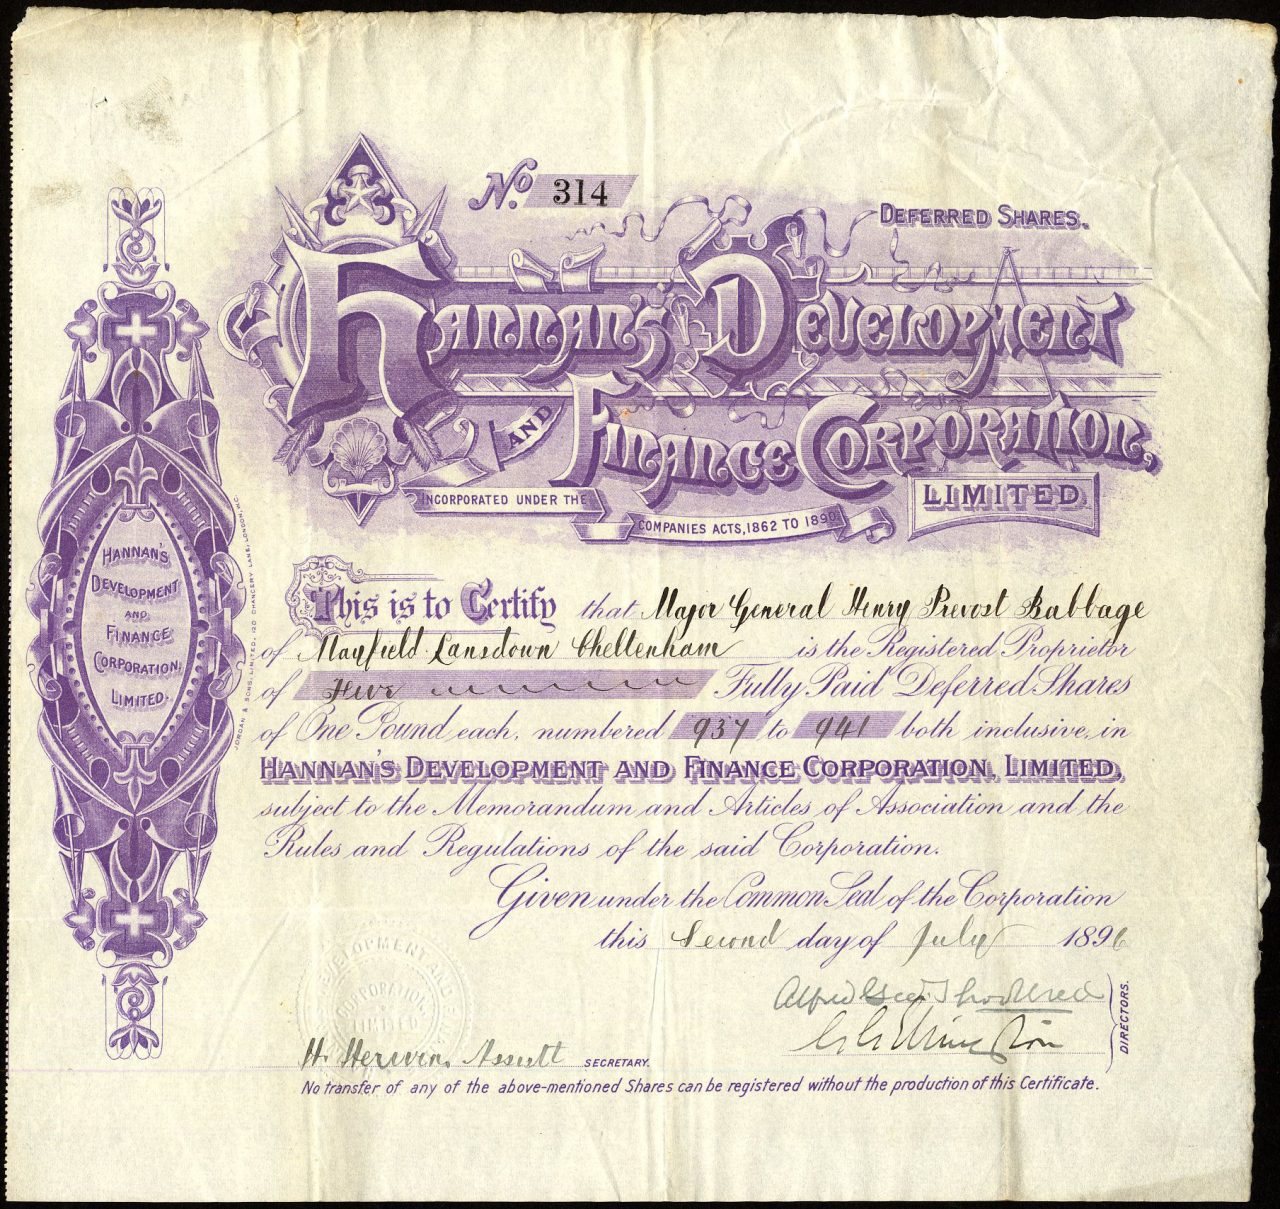 No. 314
DEFERRED SHARES.
HANNAN'S DEVELOPMENT
AND FINANCE CORPORATION,
LIMITED.
INCORPORATED UNDER THE
COMPANIES ACTS, 1862 TO 1890
This is to Certify that Major General Henry Prevost Babbage
of Mayfield Lansdown Cheltenham is the Registered Proprietor
of Five Fully Paid Deferred Shares
of One Pound each, numbered 937 to 941 both inclusive, in
HANNAN'S DEVELOPMENT AND FINANCE CORPORATION, LIMITED,
subject to the Memorandum and Articles of Association and the
Rules and Regulations of the said Corporation.
Given under the Common Seal of the Corporation
this Second day of July 1896
DIRECTORS.
H. SECRETARY.
No transfer of any of the above-mentioned Shares can be registered without the production of this Certificate.
HANNAN'S
DEVELOPMENT
AND
FINANCE
CORPORATION,
LIMITED.
JORDAN & SONS, LIMITED, 120 CHANCERY LANE, LONDON, W.C.
DEVELOPMENT AND
CORPORATION,
LIMITED